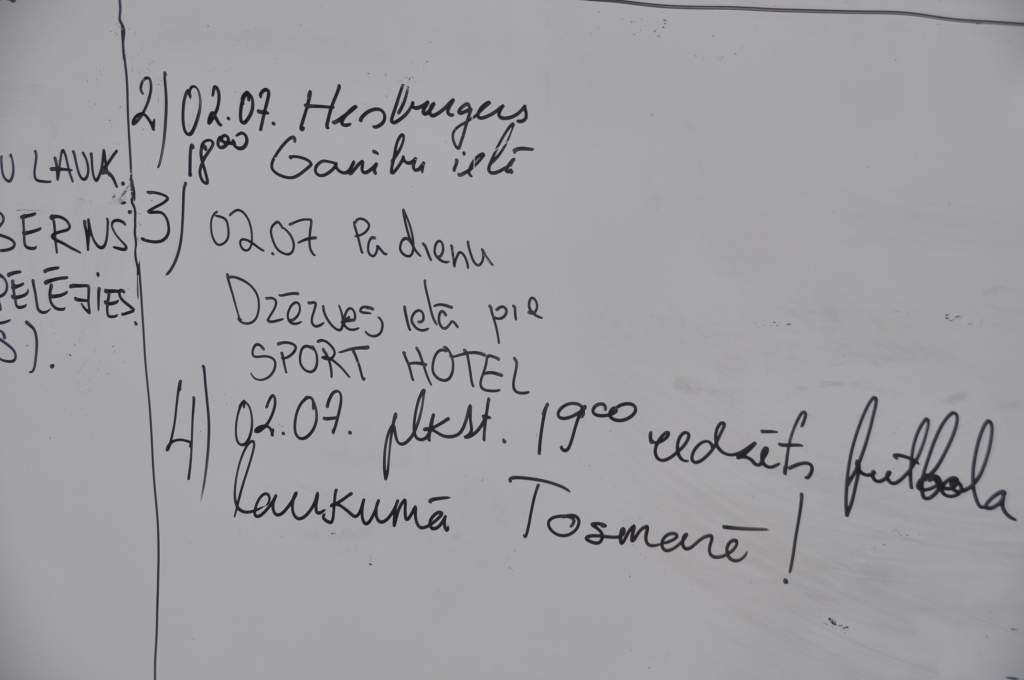 U LAUK.
BERNS
PELĒJIES.
Š).
2) 02.07. Hesburgers
18⁰⁰ Ganibu ielā
3) 02.07 Pa dienu
Dzērves ielā pie
SPORT HOTEL
4) 02.07. plkst. 19⁰⁰ redzēts futbola
laukumā Tosmarē!